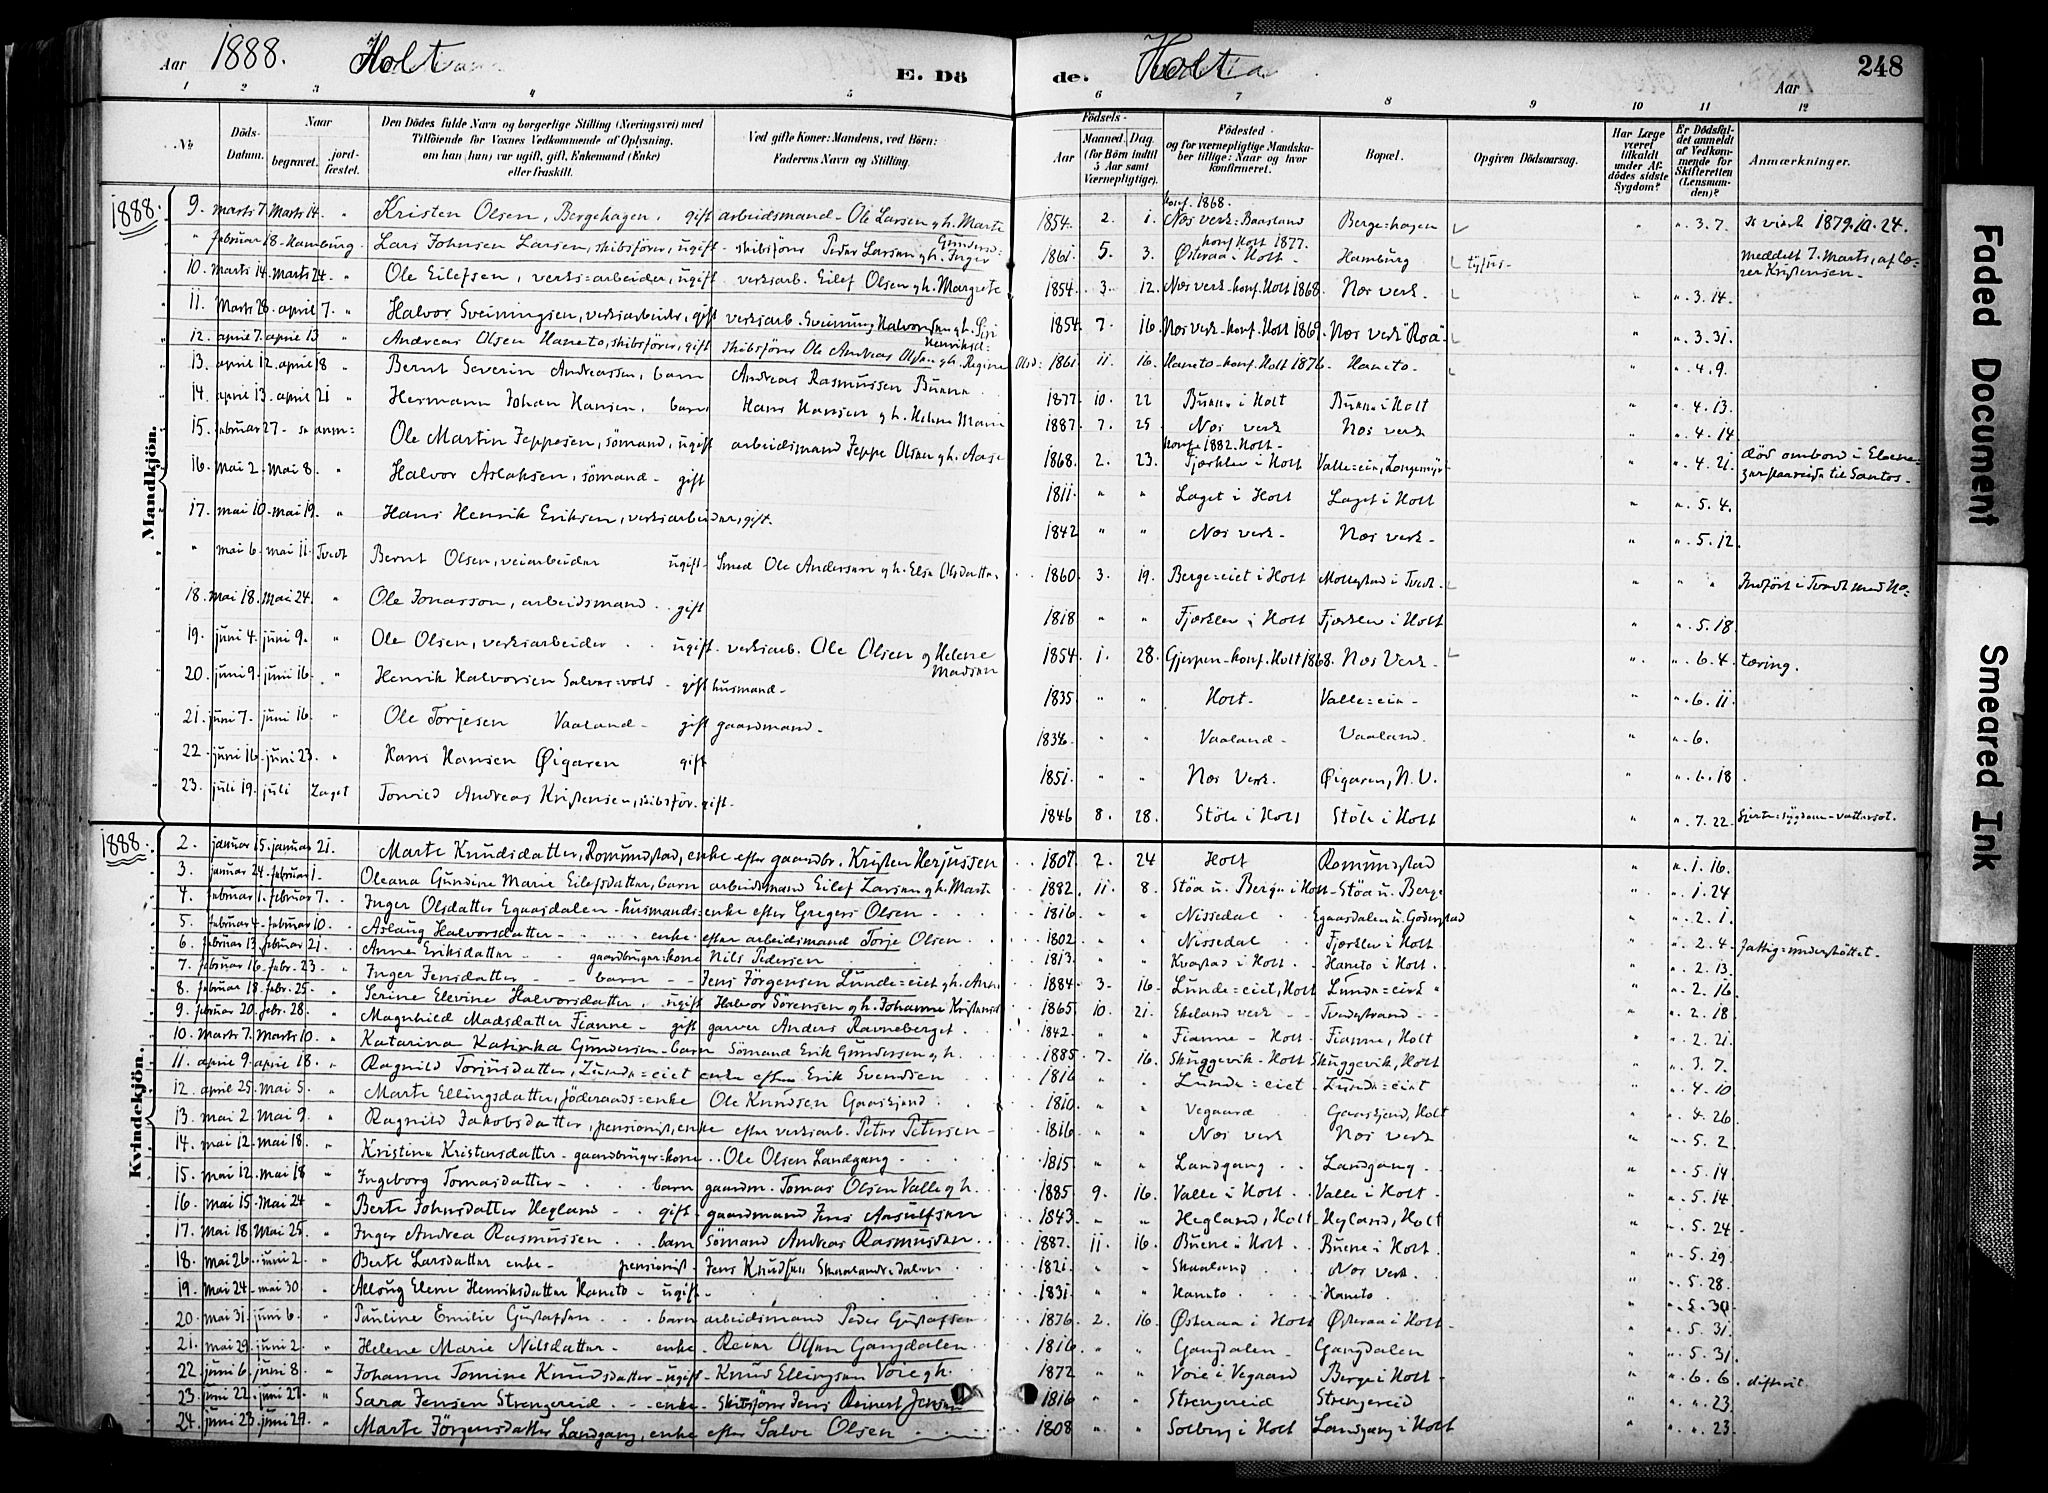 Aar 1888. Holt E. Dö de. Holt Aar 248
1 2 3 4 5 6 7 8 9 10 11 12
№ Döds-Datum. Naar begravet. jord-fæstet. Den Dödes fulde Navn og borgerlige Stilling (Næringsvei) med Tilföiende för Voxnes Vedkommende af Oplysning, om han (hun) var ugift, gift, Enkemand (Enke) eller fraskilt. Ved gifte Koner: Mandens, ved Börn: Faderens Navn og Stilling. Födsels- Aar Maaned. Dag. (for Börn indtil 5 Aar samt Værnepligtige). Födested og for værnepligtige Mandskaber tillige: Naar og hvor konfirmeret. Bopæl. Opgiven Dödsaarsag. Har Læge været tilkaldt under Afdödes sidste Sygdom? Er Dödsfaldet anmeldt af Vedkommende for Skifteretten (Lensmanden)? Anmærkninger.
Mandkjön.
1888. 9. marts 7 marts 14. " Kristen Olsen, Bergehagen, gift arbeidsmand - Ole Larsen gh. Marte Gunds: 1854. 2. 1. konf. 1868. Næs verk = Baasland Bergehagen " ". 3. 7. 1879.10.24.
" februar 18 - Hamburg. Lars Johnsen Larsen, skibsförer, ugift - skibsförer Peder Larsen gh. Inger 1861. 5. 3. konf Holt 1877. Østeraa i Holt - Hamburg tyfus - meddelt 7. Marts, af Kristensen -
10. marts 14. marts 24. " Ole Eilefsen, verks=arbeider, ugift verksarb. Eilef Olsen gh. Margrete 1854. 3. 12. Næs verk - konf. Holt 1868. Næs verk. " ". 3. 14.
11. Marts 28. april 7. " Halvor Sveinungsen, verksarbeider, gift verksarb. Sveinung Halvorsen gh. Siri Henriksd= 1854. 7. 16. Næs verk - konf. Holt 1869. Næs verk Roå. " ". 3. 31.
12. april 7. april 13 " Andreas Olsen Haneto, skibsförer, gift skibsförer Ole Andreas Olsen gh. Regine 1861. 11. 16. Haneto - konf. Holt 1876. Haneto. " ". 4. 9.
13. april 12. april 18 " Bernt Severin Andreassen, barn Andreas Rasmussen Buene 1877. 10. 22 Buene i Holt Buene i Holt " ". 4. 13.
14. april 13. april 21 " Hermann Johan Hansen, barn Hans Hansen gh. Helene Marie 1887. 7. 25. Næs verk Næs verk. " ". 4. 14
15. februar 27 - se anm= Ole Martin Jeppesen, sömand, ugift arbeidsmand Jeppe Olsen gh. Aase 1868. 2. 23. konf. 1882. Holt - Fjærkleiv i Holt Valle=eie, Longemyr " ". 4. 21 død ombord i til Santos.
16. mai 2. mai 8. " Halvor Aslaksen, sömand - gift 1811. " " Laget i Holt Laget i Holt " ". 5. 4.
17. mai 10. mai 19. " Hans Henrik Eriksen, verksarbeider, gift. 1842 " " Næs verk - Næs verk - " ". 5. 12.
" mai 6. mai 11. Tvedt Bernt Olsen, veiarbeider ugift - Smed Ole Andersen gh. Else Olsdatter. 1860. 3. 19. Berge=eiet i Holt Mollestad i Tvedt. " " Indført i Tvedt med No.
18. mai 18. mai 24. " Ole Jonassen, arbeidsmand . gift 1818 " " Fjærkleiv i Holt Fjærkleiv i Holt " ". 5. 18.
19. juni 4. juni 9. " Ole Olsen, verksarbeider . . ugift. verksarb. Ole Olsen g Helene Madsen 1854. 1. 28. Gjerpen - konf. Holt 1868. Næs Verk - ". ". 6. 4. tæring.
20. juni 9. juni 16. " Henrik Halvorsen - gift husmand - 1835 " " Holt. Valle=eie - " ". 6. 11.
21. juni 7. juni 16. " Ole Torjesen Vaaland - gift gaardmand - 1836. " " Vaaland - Vaaland. " ". 6.
22. juni 16. juni 23. " Hans Hansen Øigaren gift 1851. " " Næs Verk. Øigaren, N. V. " ". 6. 18
23. juli 19. juli Laget Torvild Andreas Kristensen, skibsför. gift. 1846 8. 28. Stöle i Holt Stöle i Holt " ". 7. 22. hjerte=sygdom - vattersot.
Kvindekjön.
1888. 2. januar 15. januar 21. Marte Knudsdatter, Romundstad, enke efter gaardbr. Kristen Herjussen . . 1807. 2. 24 Holt Romundstad " ". 1. 16.
3. januar 24. februar 1. Oleana Gundine Marie Eilefsdatter, barn arbeidsmand Eilef Larsen gh. Marte . . 1882. 11. 8. Støa u. Berge i Holt - Støa u. Berge " ". 1. 24
4. februar 1. februar 7. " Inger Olsdatter Egaasdalen - husmands=enke efter Gregers Olsen . . 1816 " " Nissedal . . Egaasdalen u. Goderstad " ". 2. 1.
5. februar 4. februar 10. " Aslaug Halvorsdatter - enke efter arbeidsmand Torje Olsen . . 1802 " " Nissedal . Fjærkleiv i Holt " ". 2. 4. fattig=understøttet.
6. februar 13. februar 21. " Anne Eriksdatter - gaardbruger=kone Nils Pedersen . . 1813. " " Kvastad i Holt. Haneto i Holt. " ". 2. 13.
7. februar 16. febr. 23. " Inger Jensdatter - barn - Jens Jörgensen Lunde=eiet gh. Anne . . 1884. 3. 16. Lunde=eiet, Holt Lunde=eiet " " ". 2. 16.
8. februar 18. febr. 25. " Serine Elevine Halvorsdatter, ugift Halvor Sörensen gh. Johanne Kristensd. 1865 10. 21. Ekeland verk - Tvedestrand - " ". 2. 18
9. februar 20. febr. 28. " Magnhild Madsdatter Fianne - gift garver Anders Ravneberget . . 1842. " " Fianne - Holt - Fianne, Holt " ". 2. 21.
10. marts 7. marts 10. " Katarina Katinka Gundersen - barn Sömand Erik Gundersen gh. . . 1885. 7. 16. Skuggevik - Holt Skuggevik, Holt " ". 3. 7.
11. april 9. april 18. " Ragnild Torjusdatter, Lunde=eiet enke efter Erik Svendsen . . 1816 " " Lunde=eiet Lunde=eiet " ". 4. 10
12. april 25. mai 5. " Marte Ellingsdatter, föderaads=enke Ole Knudsen Gaaskjend . . 1810 " " Vegaard Gaaskjend, Holt " ". 4. 26
13. mai 2. mai 9. " Ragnild Jakobsdatter, pensionist, enke efter verksarb. Peter Petersen - . . 1816. " " Næs verk Næs verk " ". 5. 2
14. mai 12. mai 18. " Kristine Kristensdatter - gaardbruger=kone . . Ole Olsen Landgang - . . 1815. " " Landgang . . Landgang. " ". 5. 14.
15. mai 12. mai 18 " Ingeborg Tomasdatter - . . barn gaardm. Tomas Olsen Valle gh. . . 1885. 9. 16. Valle i Holt . Valle i Holt. " ". 5. 14
16. mai 15. mai 24 " Berte Johnsdatter Hegland - . gift - gaardmand Jens Aasulfsen . . 1843. " " Hegland, Holt. Hegland, Holt " ". 5. 24.
17. mai 18. mai 25. " Inger Andrea Rasmussen . . barn Sömand Andreas Rasmussen . . 1887. 11. 16. Buene i Holt . Buene i Holt. " ". 5. 29.
18. mai 26. juni 2. " Berte Larsdatter enke - pensionist - Jens Knudsen Skaalandsdalen . . 1821. " " Skaaland . . Næs verk. " ". 5. 28.
19. mai 24. mai 30 " Elene Henriksdatter Haneto - ugift - . . 1831. " " Haneto . . Haneto. " ". 5. 30
20. mai 31. juni 6. " Pauline Emilie Gustafsen . . barn arbeidsmand Peder Gustafsen . . 1876. 2. 16. Østeraa i Holt Østeraa i Holt. " ". 5. 31.
21. mai 29. juni 2. " Helene Marie Nilsdatter - enke - Reier Olsen Gangdalen . . 1816 " " Gangdalen - Gangdalen " ". 5. 31.
22. juni 6. juni 8. " Johanne Tomine Knudsdatter - ugift - Knud Ellingsen Voie gh. . . 1872 " " Voie i Vegaard Berge i Holt - " ". 6. 6. difterit.
23. juni 22. juni 27. " Sara Jensen Strengereid . . enke - Skibsförer Jens Reinert Jensen . . 1816 " " Strengereid Strengereid " ". ". 23.
24. juni 23. juni 27. " Marte Jörgensdatter Landgang, enke efter Salve Olsen . . 1808 " " Solberg i Holt Landgang i Holt " ". ". 23
Faded Document
Smeared Ink